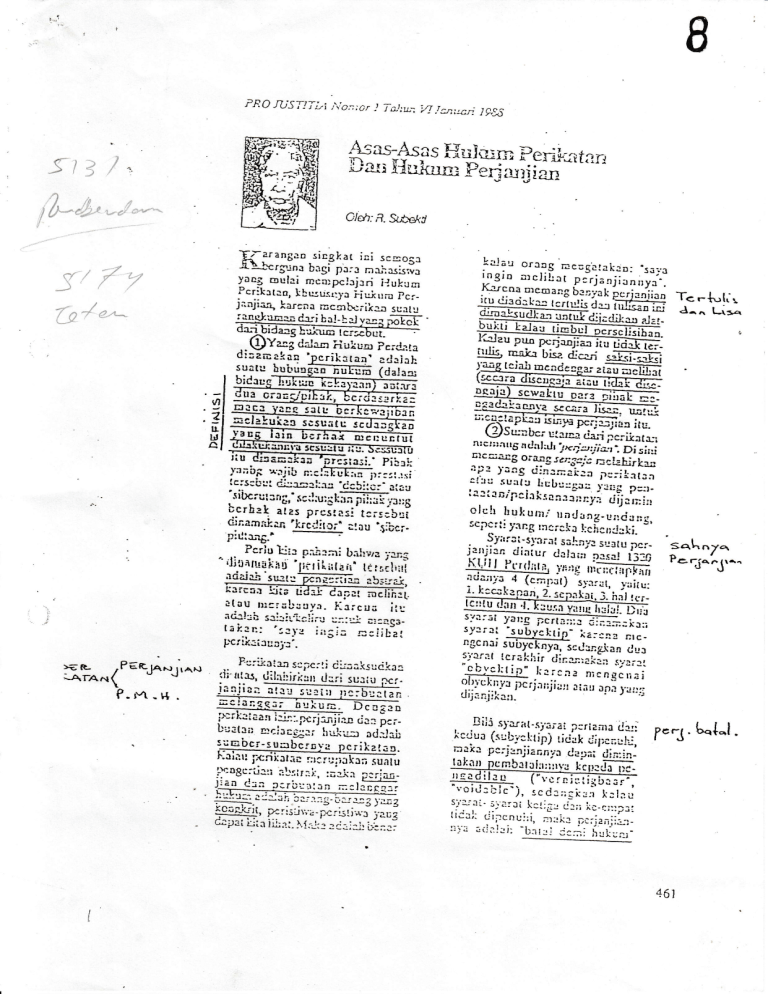 8
PRO JUSTITIA Nomor 1 Tahun VI Januari 1988
Asas-Asas Hukum Perikatan
Dan Hukum Perjanjian
Oleh: R. Subekti
Karangan singkat ini semoga
berguna bagi para mahasiswa
yang mulai mempelajari Hukum
Perikatan, khususnya Hukum Per-
janjian, karena memberikan suatu
rangkuman dari hal-hal yang pokok
dari bidang hukum tersebut.
1 Yang dalam Hukum Perdata
dinamakan "perikatan" adalah
suatu hubungan hukum (dalam
bidang hukum kekayaan) antara
dua orang/pihak, berdasarkan
mana yang satu berkewajiban
melakukan sesuatu sedangkan
yang lain berhak menuntut
dilakukannya sesuatu itu. Sessuatu
itu dinamakan "prestasi." Pihak
yanbg wajib melakukan prestasi
tersebut dinamakan "debitor" atau
"siberutang," sedangkan pihak yang
berhak atas prestasi tersebut
dinamakan "kreditor" atau "siber-
piutang."
Perlu kita pahami bahwa yang
dinamakan "perikatan" tersebut
adalah suatu pengertian abstrak,
karena kita tidak dapat melihat
atau merabanya. Karena itu
adalah salah/keliru untuk menga-
takan: "saya ingin melihat
perikatannya".
Perikatan seperti dimaksudkan
di atas, dilahirkan dari suatu per-
janjian atau suatu perbuatan
melanggar hukum. Dengan
perkataan lain: perjanjian dan per-
buatan melanggar hukum adalah
sumber-sumbernya perikatan.
Kalau perikatan merupakan suatu
pengertian abstrak, maka perjan-
jian dan perbuatan melanggar
hukum adalah barang-barang yang
kongkrit, peristiwa-peristiwa yang
dapat kita lihat. Maka adalah benar
DEFINISI
PERJANJIAN
P.M.H.
kalau orang mengatakan: "saya
ingin melihat perjanjiannya".
Karena memang banyak perjanjian
itu diadakan tertulis dan tulisan ini
dimaksudkan untuk dijadikan alat-
bukti kalau timbul perselisihan.
Kalau pun perjanjian itu tidak ter-
tulis, maka bisa dicari saksi-saksi
yang telah mendengar atau melihat
(secara disengaja atau tidak dise-
ngaja) sewaktu para pihak me-
ngadakannya secara lisan, untuk
menetapkan isinya perjanjian itu.
2 Sumber utama dari perikatan
memang adalah "perjanjian". Di sini
memang orang sengaja melahirkan
apa yang dinamakan perikatan
atau suatu hubungan yang pen-
taatan/pelaksanaannya dijamin
oleh hukum/ undang-undang,
seperti yang mereka kehendaki.
Syarat-syarat sahnya suatu per-
janjian diatur dalam pasal 1320
KUH Perdata, yang menetapkan
adanya 4 (empat) syarat, yaitu:
1. kecakapan, 2. sepakat, 3. hal ter-
tentu dan 4. kausa yang halal. Dua
syarat yang pertama dinamakan
syarat "subyektip" karena me-
ngenai subyeknya, sedangkan dua
syarat terakhir dinamakan syarat
"obyektip" karena mengenai
obyeknya perjanjian atau apa yang
dijanjikan.
Bila syarat-syarat pertama dan
kedua (subyektip) tidak dipenuhi,
maka perjanjiannya dapat dimin-
takan pembatalannya kepada pe-
ngadilan ("vernietigbaar",
"voidable"), sedangkan kalau
syarat- syarat ketiga dan ke-empat
tidak dipenuhi, maka perjanjian-
nya adalah "batal demi hukum"
Tertulis
dan Lisa
sahnya
Perjanjian
perj. batal.
461